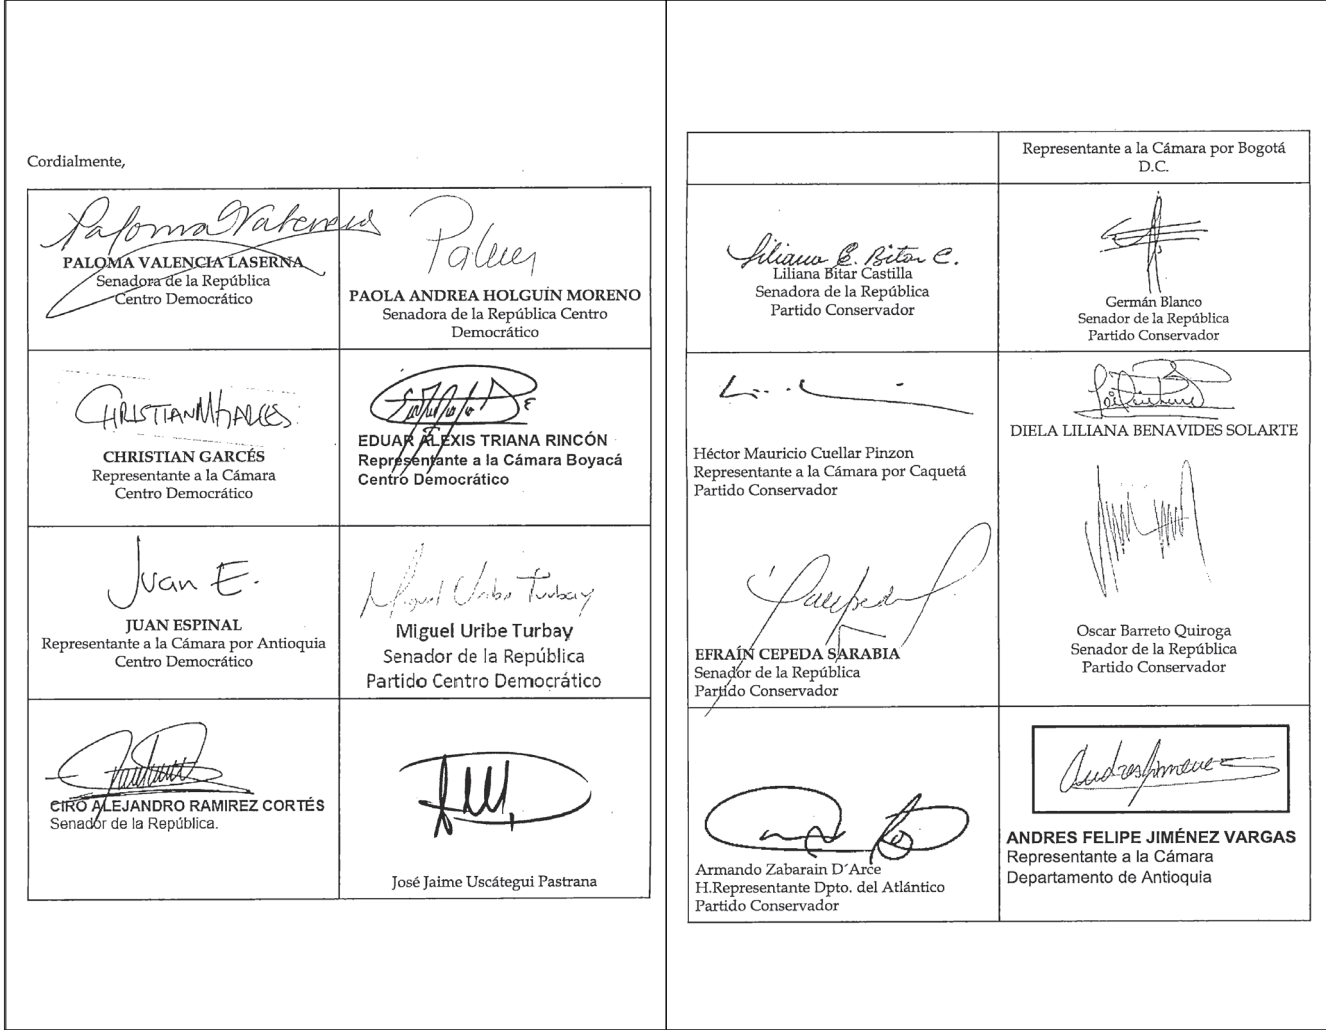 Cordialmente,
Paloma Valencia
PALOMA VALENCIA LASERNA
Senadora de la República
Centro Democrático
PAOLA ANDREA HOLGUÍN MORENO
Senadora de la República Centro
Democrático
CHRISTIAN M GARCES
CHRISTIAN GARCÉS
Representante a la Cámara
Centro Democrático
EDUAR ALEXIS TRIANA RINCÓN
Representante a la Cámara Boyacá
Centro Democrático
Juan E.
JUAN ESPINAL
Representante a la Cámara por Antioquia
Centro Democrático
Miguel Uribe Turbay
Miguel Uribe Turbay
Senador de la República
Partido Centro Democrático
CIRO ALEJANDRO RAMIREZ CORTÉS
Senador de la República.
José Jaime Uscátegui Pastrana
Representante a la Cámara por Bogotá
D.C.
Liliana E. Bitar C.
Liliana Bitar Castilla
Senadora de la República
Partido Conservador
Germán Blanco
Senador de la República
Partido Conservador
Héctor Mauricio Cuellar Pinzon
Representante a la Cámara por Caquetá
Partido Conservador
DIELA LILIANA BENAVIDES SOLARTE
EFRAÍN CEPEDA SARABIA
Senador de la República
Partido Conservador
Oscar Barreto Quiroga
Senador de la República
Partido Conservador
Armando Zabarain D´Arce
H.Representante Dpto. del Atlántico
Partido Conservador
ANDRES FELIPE JIMÉNEZ VARGAS
Representante a la Cámara
Departamento de Antioquia